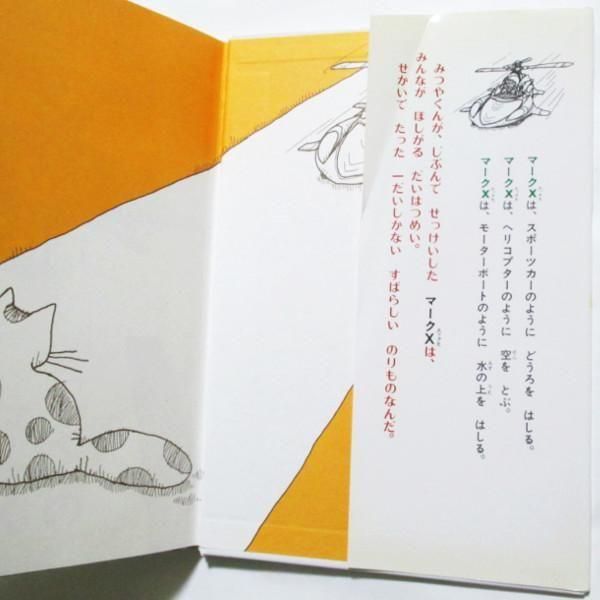 マークXは、スポーツカーのように　どうろを　はしる。
マークXは、ヘリコプターのように　空を　とぶ。
マークXは、モーターボートのように　水の上を　はしる。
みつやくんが、じぶんで　せっけいした　マークXは、
みんなが　ほしがる　だいはつめい。
せかいで　たった　一だいしかない　すばらしい　のりものなんだ。